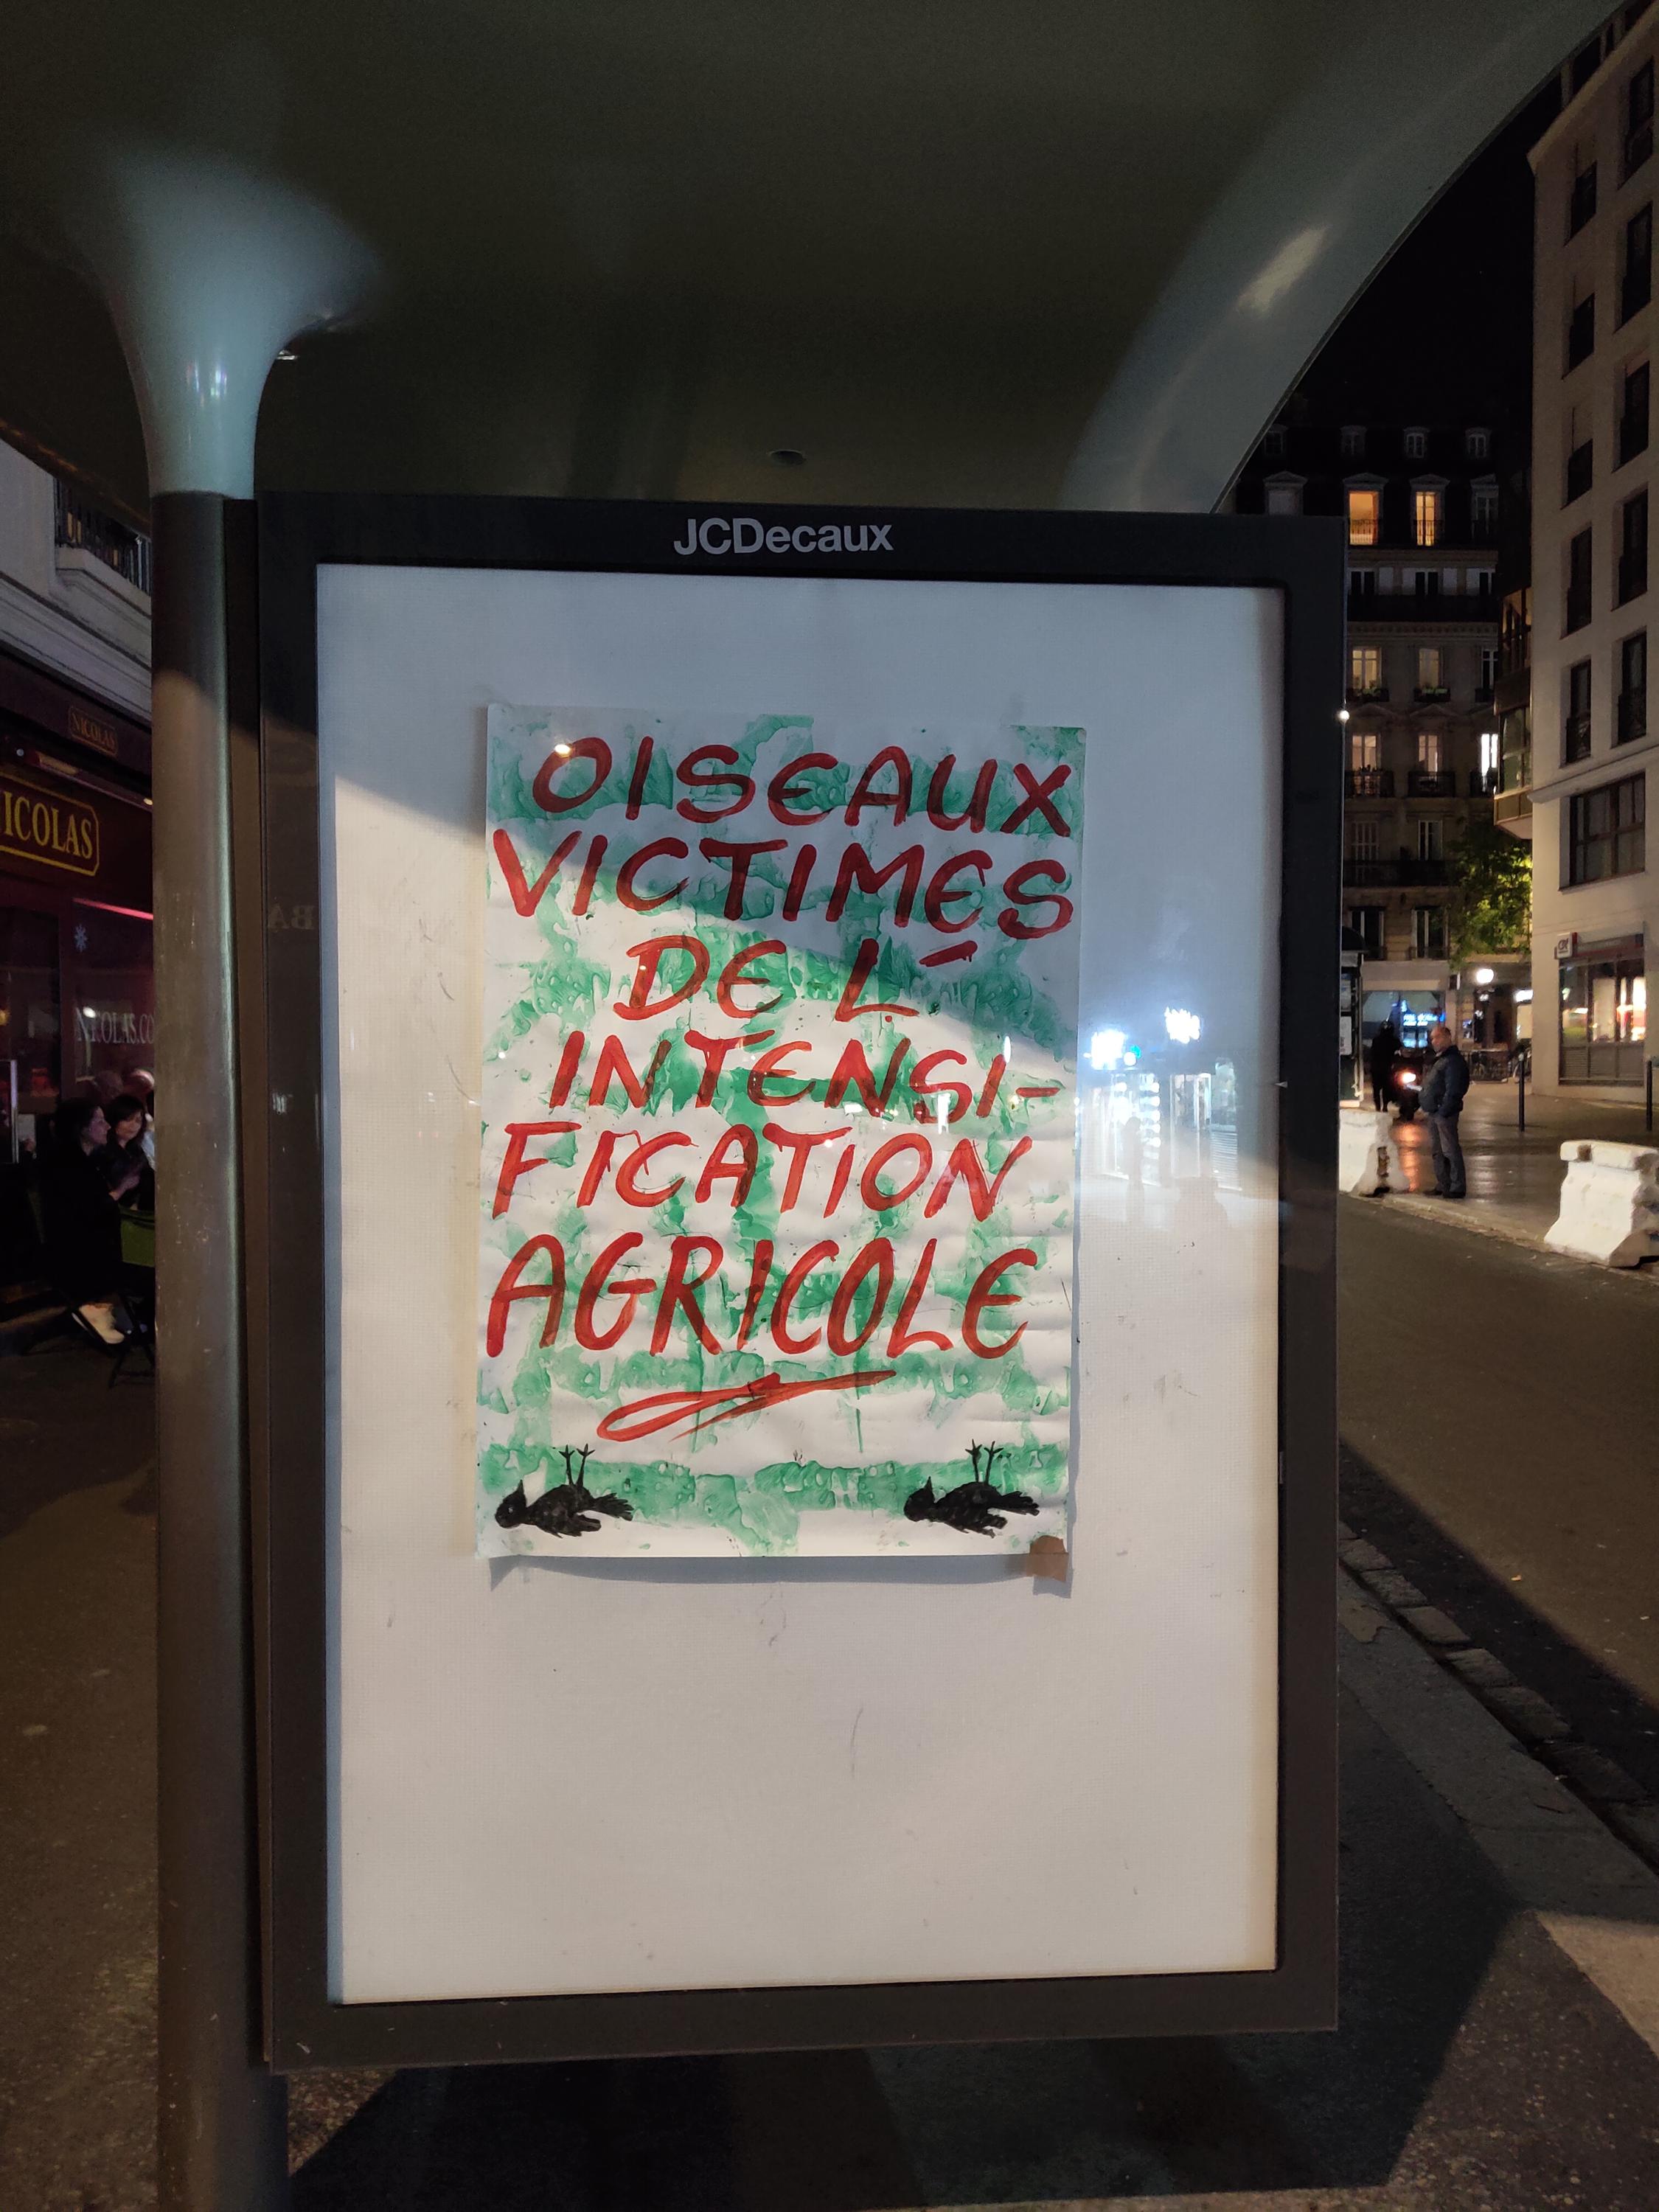 JCDecaux
OISEAUX
VICTIMES
DE L'
INTENSI-
FICATION
AGRICOLE
NICOLAS
ICOLAS
NICOLAS.CO